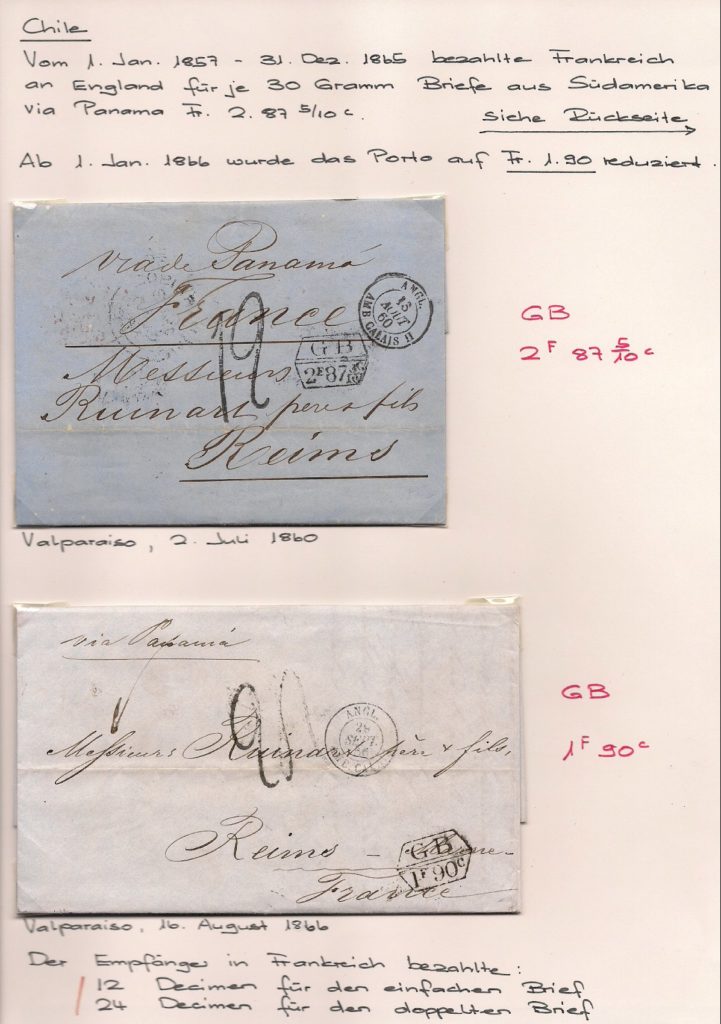 Chile
Vom 1. Jan. 1857 - 31. Dez. 1865 bezahlte Frankreich
an England für je 30 Gramm Briefe aus Südamerika
via Panama Fr. 2.87 5/10 c.
Siehe Rückseite
Ab 1. Jan. 1866 wurde das Porto auf Fr. 1.90 reduziert.
via de Panamá
France
12
ANGL.
13
AOUT
60
AMB. CALAIS H
GB
2F 87 5/10c
Messieurs
Ruinart pere & fils
Reims
GB
2F 87 5/10 c
Valparaiso, 2. Juli 1860
via Panamá
24
ANGL.
28
SEPT.
Messieurs Ruinart père & fils,
Reims
France
GB
1F 90c
GB
1F 90c
Valparaiso, 16. August 1866
Der Empfänger in Frankreich bezahlte:
12 Decimen für den einfachen Brief
24 Decimen für den doppelten Brief